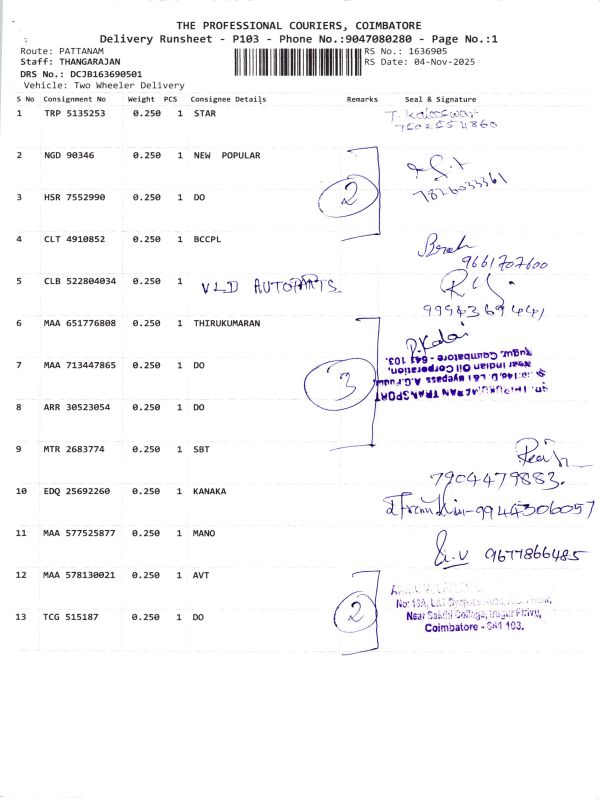 THE PROFESSIONAL COURIERS, COIMBATORE
Delivery Runsheet - P103 - Phone No.:9047080280 - Page No.:1
Route: PATTANAM RS No.: 1636905
Staff: THANGARAJAN RS Date: 04-Nov-2025
DRS No.: DCJB163690501
Vehicle: Two Wheeler Delivery
S No Consignment No Weight PCS Consignee Details Remarks Seal & Signature
1 TRP 5135253 0.250 1 STAR
2 NGD 90346 0.250 1 NEW POPULAR
7826033361
3 HSR 7552990 0.250 1 DO 2
4 CLT 4910852 0.250 1 BCCPL
9661707600
5 CLB 522804034 0.250 1 VLD AUTOPARTS
9994369441
6 MAA 651776808 0.250 1 THIRUKUMARAN
P. Kalai
Kugur, Coumbatore - 641 103.
Near Indian Oil Corporation,
7 MAA 713447865 0.250 1 DO 3
TRANSPORT
8 ARR 30523054 0.250 1 DO
9 MTR 2683774 0.250 1 SBT
7904479883.
10 EDQ 25692260 0.250 1 KANAKA
9944306057
11 MAA 577525877 0.250 1 MANO
9677866485
12 MAA 578130021 0.250 1 AVT
13 TCG 515187 0.250 1 DO 2
Near Sakthi College,
Coimbatore - 641 103.